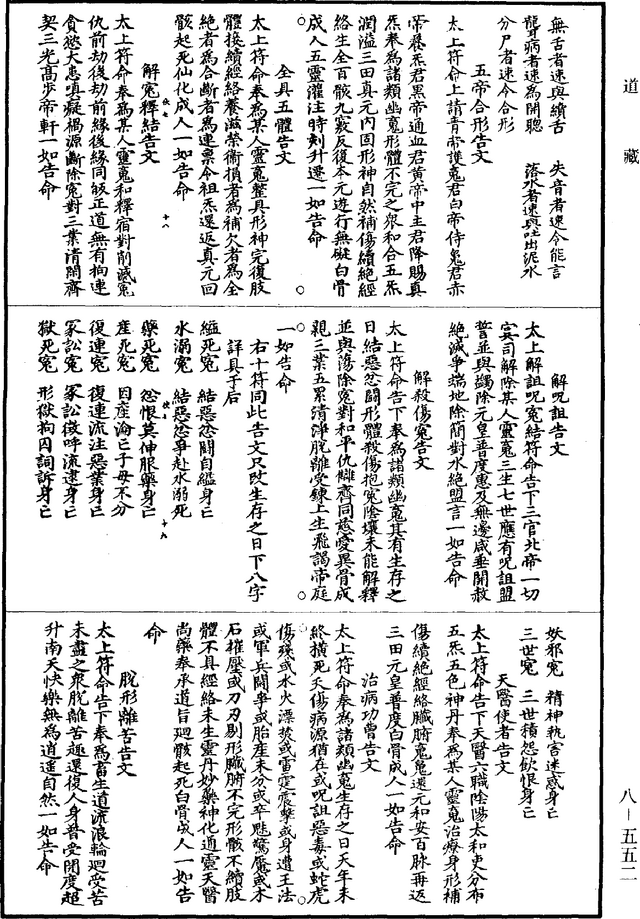 道藏
無舌者速與續舌　　失音者速令能言
聾病者速為開聰　　落水者速與吐出泥水
分尸者速令合形
五帝合形告文
太上符命上請青帝護䰟君白帝侍䰟君赤
帝養炁君黑帝通血君黃帝中主君降賜真
炁奉為諸類幽䰟形體不完之衆和合五炁
潤溢三田真元內固形神自然補傷續絕經
絡生全百骸九竅反復本元遊行無礙白骨
成人五靈灌注時刻升遷一如告命
全具五體告文
太上符命奉為某人靈䰟整具形神完復肢
體接續經絡養滋榮衛損者為補欠者為全
絕者為合斷者為連稟令祖炁還返真元回
骸起死仙化成人一如告命
解冤釋結告文
太上符命奉為某人靈䰟和釋宿對削滅冤
仇前劫後劫前緣後緣同皈正道無有拘連
貪慾大恚嗔癡禍源斷除冤對三業清閑齊
契三光高步帝軒一如告命
解呪詛告文
太上解詛呪冤結符命告下三官北帝一切
冥司解除某人靈䰟三生七世應有呪詛盟
誓並與蠲除元皇普度惠及無邊咸垂開赦
絕滅爭端地除簡對水絕盟言一如告命
解殺傷冤告文
太上符命告下奉為諸類幽䰟其有生存之
日結惡忿鬪形體殺傷抱冤陰壤未能解釋
並與蕩除冤對和平仇讎齊同慈愛異骨成
親三業五累清淨脫離受鍊上生飛謁帝庭
一如告命
右十符同此告文只改生存之日下八字
詳具于后
縊死冤　結惡忿鬪自縊身亡
水溺冤　結惡忿爭赴水溺死
藥死冤　忿恨莫伸服藥身亡
產死冤　因產淪亡子母不分
復連冤　復連流注惡業身亡
冢訟冤　冢訟徵呼流逮身亡
獄死冤　形獄拘囚詞訴身亡
妖邪冤　精神執害迷惑身亡
三世冤　三世積怨飲恨身亡
天醫使者告文
太上符命告下天醫六職陰陽太和吏分布
五炁五色神丹奉為某人靈䰟治療身形補
傷續絕經絡臟腑䰟䰟還元和安百脉再返
三田元皇普度白骨成人一如告命
治病功曹告文
太上符命奉為諸類幽䰟生存之日天年未
終橫死夭傷病源猶在或呪詛惡毒或蛇虎
傷殘或水火漂焚或雷霆震擊或身遭王法
或軍兵鬪爭或胎產未分或卒魅驚魘或木
石摧壓或刀刃剔形臟腑不完形骸不續肢
體不具經絡未生靈丹妙藥神化通靈天醫
尚藥奉承道旨廻骸起死白骨成人一如告
命
脫形離苦告文
太上符命告下奉為畜生道流浪輪廻受苦
未盡之衆脫離苦趣還復人身普受開度超
升南天快樂無為逍遥自然一如告命
八－五五二